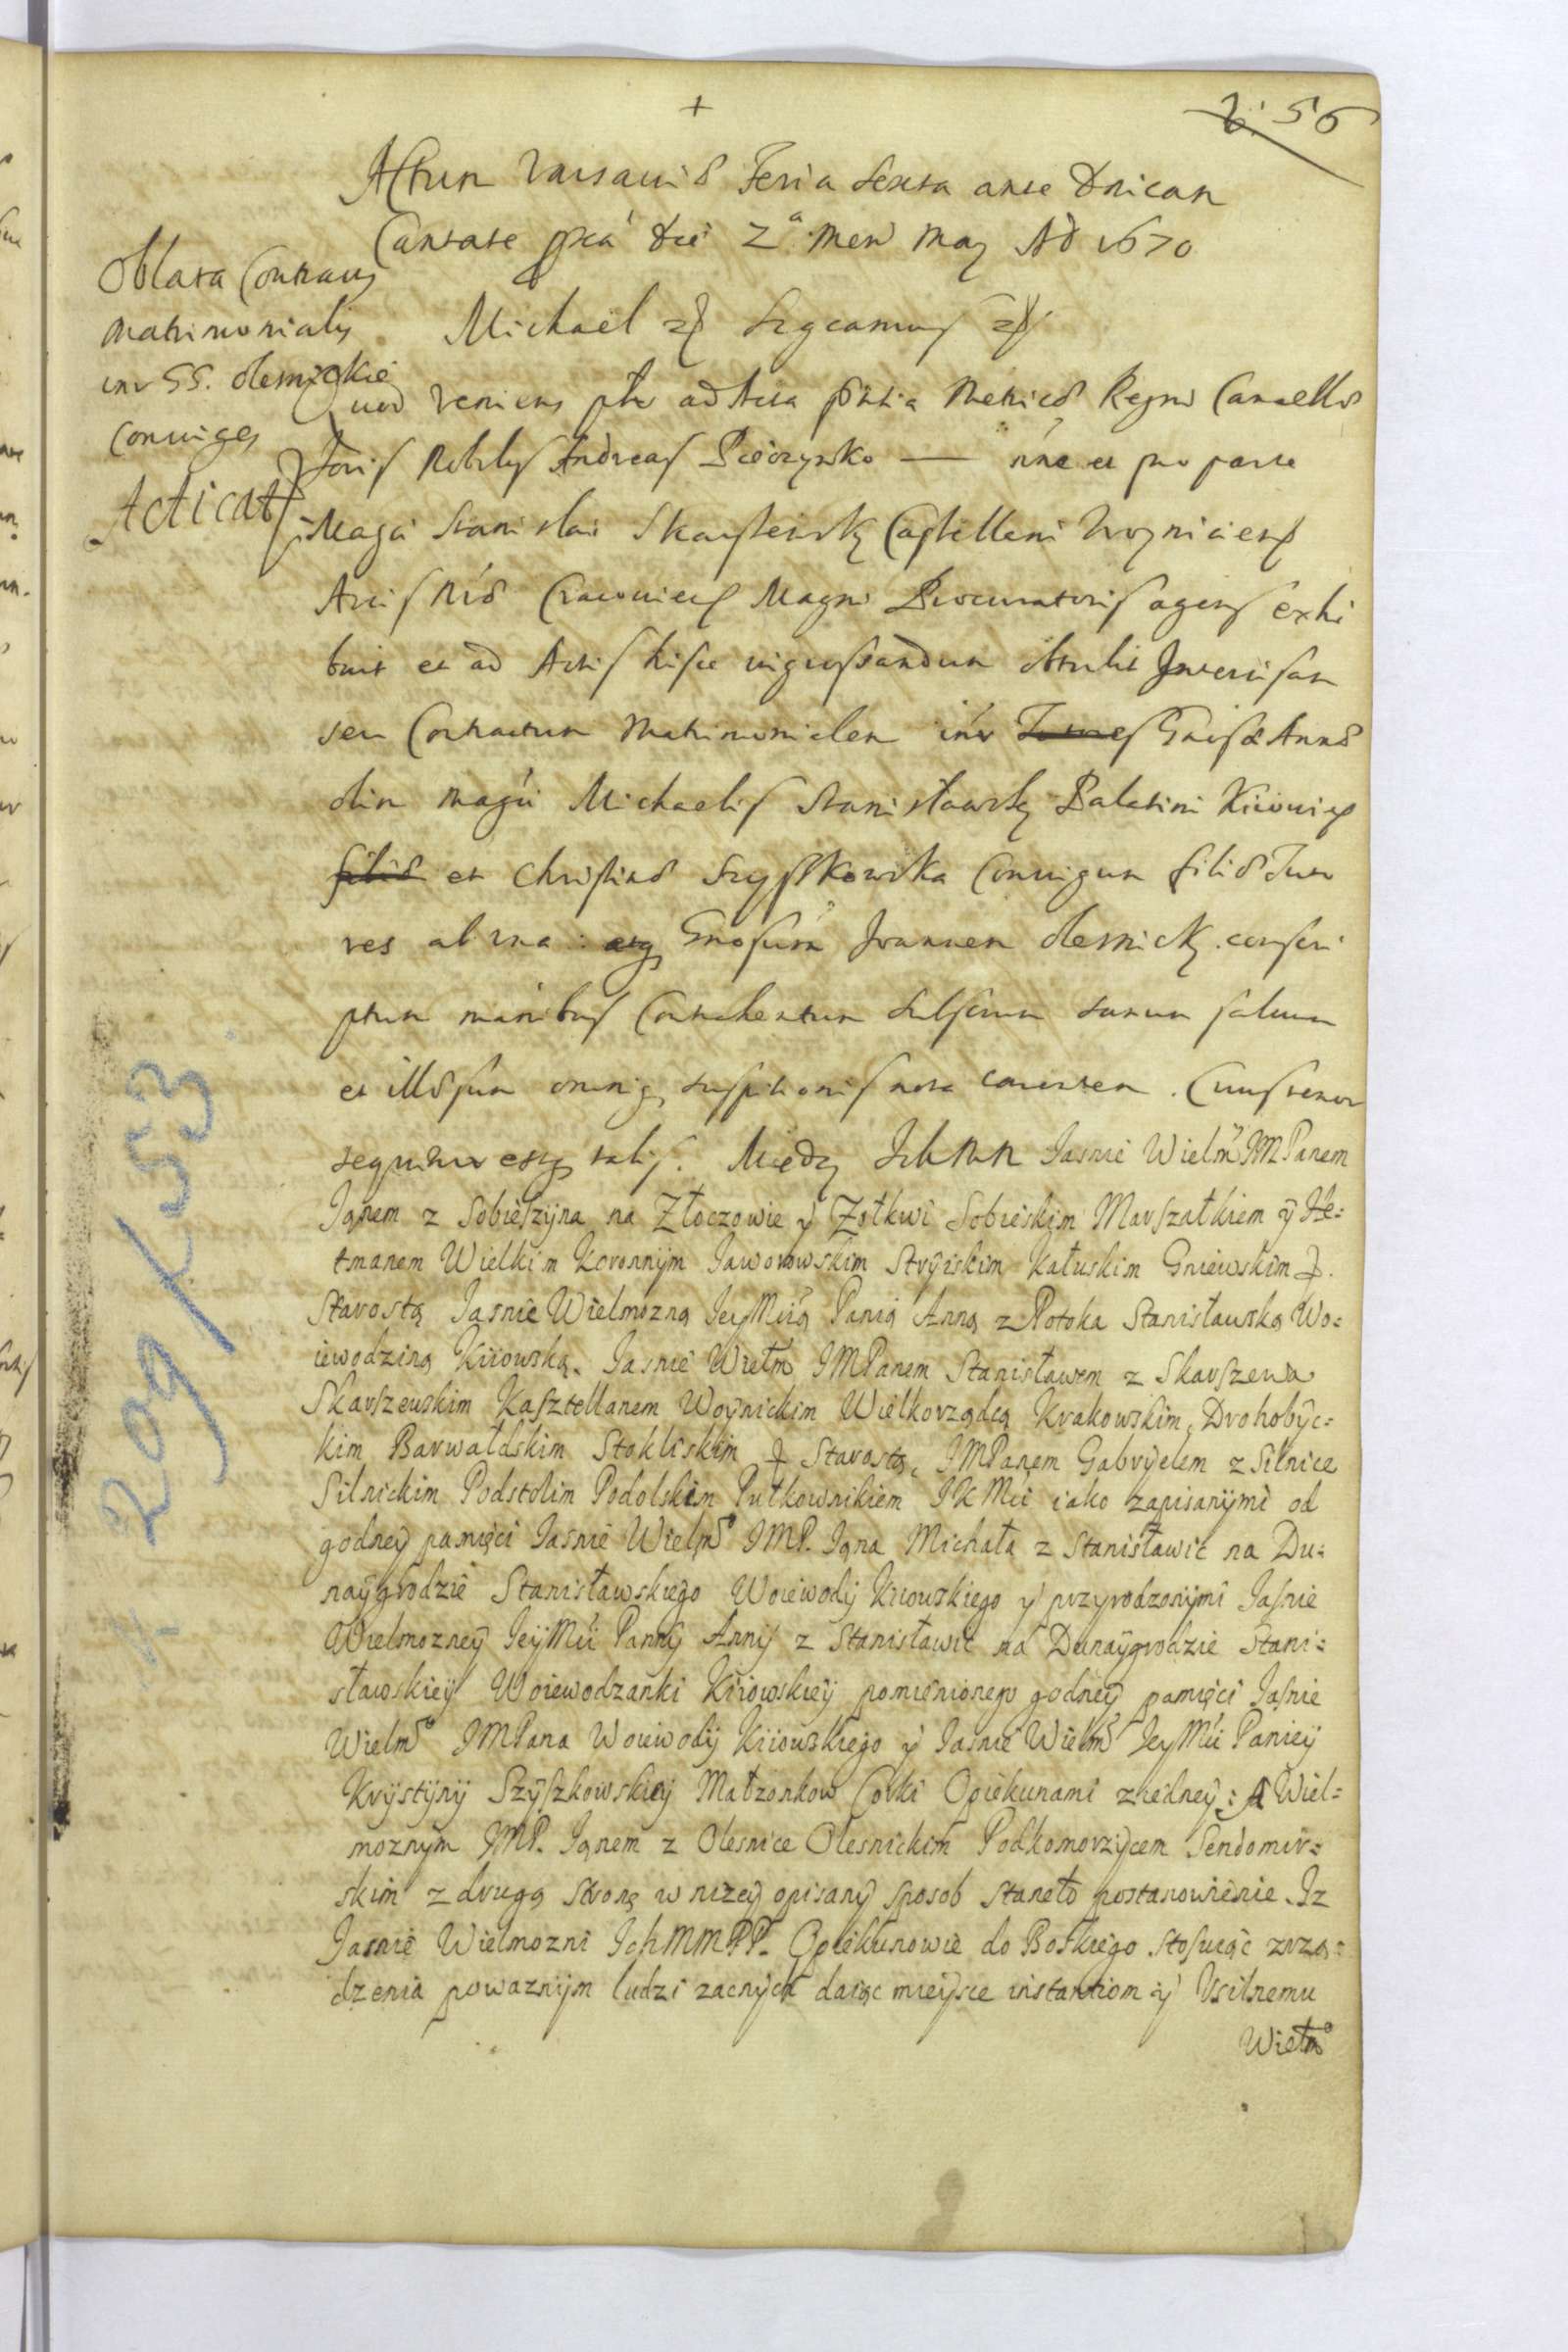 +
56
Actum Varsaviæ Feria Sexta ante Dnicam
Cantate pxa die 2ª Men May Ad 1670
Oblata Contractus
Matrimonialis
intr SS. Olesnickie
Coniuges
Acticat
Michaël etc Sigcamus etc
Quod veniens ptr ad Acta pñtia Metrices Regni Cancellæ
Toris Nobilis Andreas Pieczynsko — nne et pro parte
Magci Stanislai Skarszewsky Castellani Woyniciens
Arcis nræ Cracovien Magni Procuratoris agens exhi
buit et ad Actis hisce ingrossandum obtulit Intercisam
seu Contractum Matrimonialem intr Gnosæ Annæ
olim Magci Michaelis Stanisławsky Palatini Kijovien
filiæ et Christinæ Szyszkowska Coniugum filiæ Tuto
res ab una: atq Gnosum Joannem Olesnicky conscri
ptum manibus Contrahentium Subscriptum sanum salvum
et illæsum omniq suspitionis nota carentem. Cuius tenor
sequitur estq talis. Między Ich MM Iasnie Wielm IMPanem
Ianem z Sobieszyna na Złoczowie y Zołkwi Sobieskim Marszałkiem y He:
tmanem Wielkim Koronnym Iaworowskim Stryiskim Kałuskim Gniewskim etc.
Starostą Iasnie Wielmozną IeyMcią Panią Anną z Potoka Stanisławską Wo:
iewodziną Kiiowską. Iasnie Wielm IMPanem Stanisławem z Skarszewa
Skarszewskim Kasztellanem Woynickim Wielkorządcą Krakowskim, Drohobyc:
kim Barwałdskim Stokliskim etc Starostą, IMPanem Gabryelem z Silnice
Silnickim Podstolim Podolskim Pułkownikiem IKMci iako zapisanymi od
godney pamięci Iasnie Wielmº IMP. Iana Michała z Stanisławic na Du:
naygrodzie Stanisławskiego Woiewody Kiiowskiego y przyrodzonymi Iasnie
Wielmozney IeyMci Panny Anny z Stanisławic na Dunaygrodzie Stani:
sławskiey Woiewodzanki Kiiowskiey pomienionego godney pamięci Iasnie
Wielmº IMPana Woiewody Kiiowskiego y Iasnie Wielmº IeyMci Paniey
Krystyny Szyszkowskiey Małzonkow Corki Opiekunami z iedney: A Wiel:
moznym IMP. Ianem z Olesnice Olesnickim Podkomorzycem Sendomir:
skim z drugą stronę w nizey opisany sposob staneło postanowienie. Iz
Iasnie Wielmozni IchMMPP. Opiekunowie do Boskiego stosuiąc zrzą:
dzenia powaznym ludzi zacnych daiąc mieysce instantiom y Usilnemu
Wielmº
K 209/K53